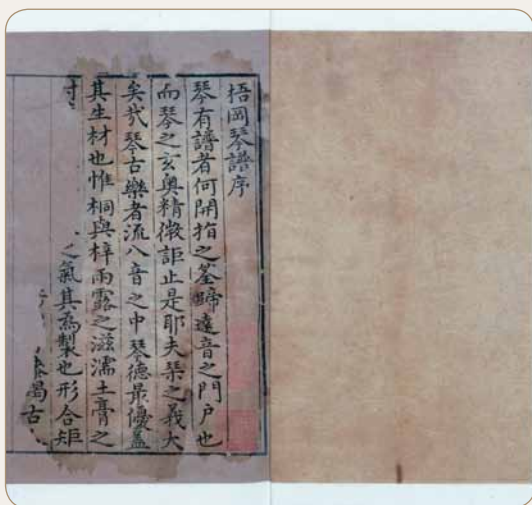 梧岡琴譜序
琴有譜者何開指之筌蹄達音之門户也
而琴之玄奥精微詎止是耶夫琴之義大
矣㢤琴古樂者流八音之中琴德最優蓋
其生材也惟桐與梓雨露之滋濡土膏之
之氣其為製也形合矩
古